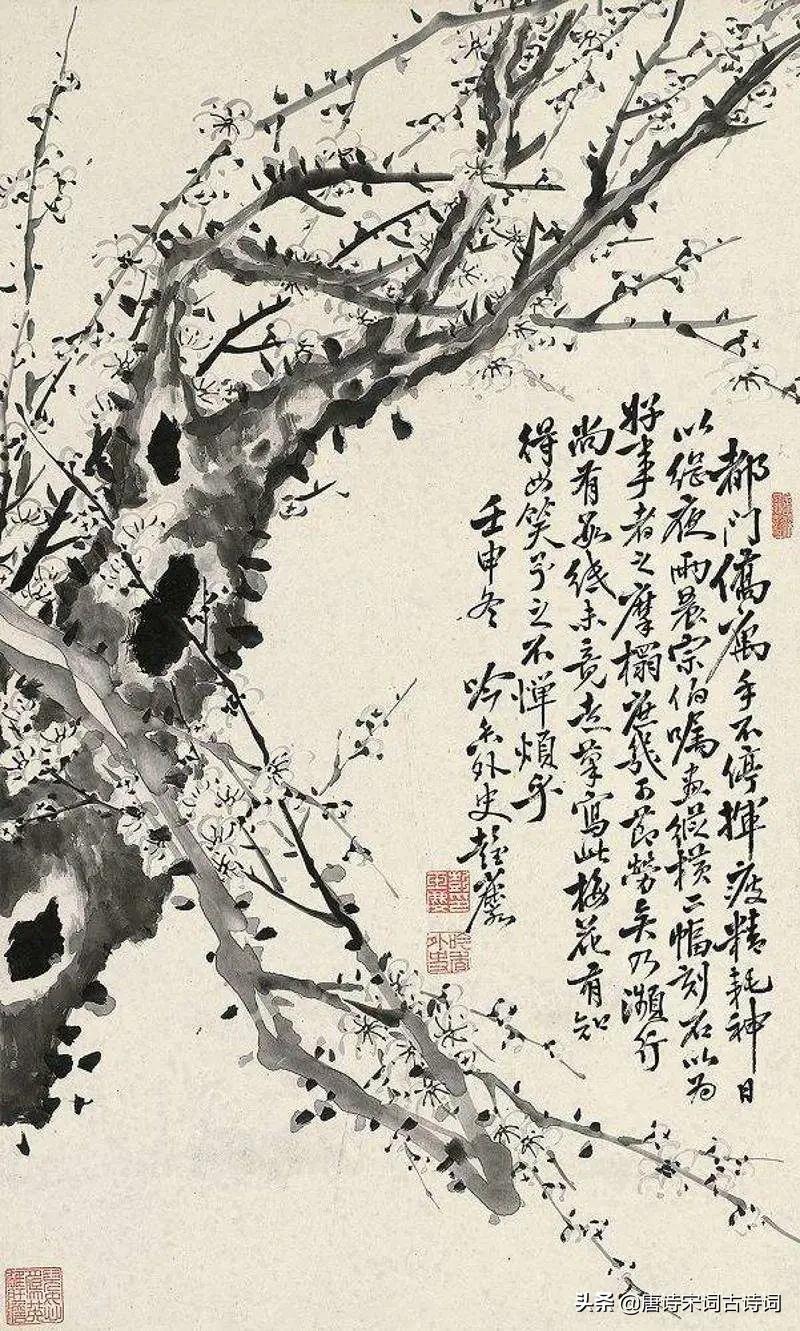 都门侨寓手不停挥疲精耗神日
以继夜雨晨宗伯嘱画纵横二幅刻石以为
好事者之摩榻庶几可节劳矣乃濒行
尚有数纸未竟走笔写此梅花有知
得毋笑予之不惮烦乎
壬申冬 吟香外史
头条 @唐诗宋词古诗词